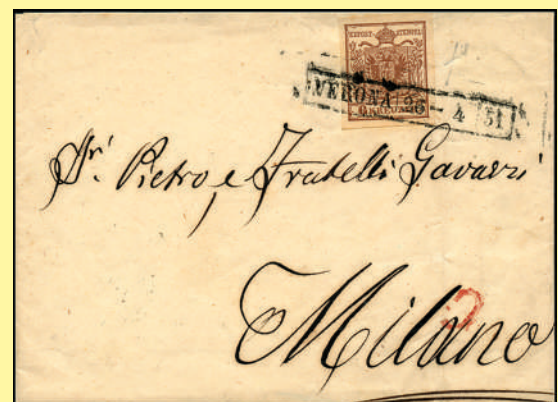 VERONA 26 4 51
Sri. Pietro, e Fratelli Gavazzi
Milano